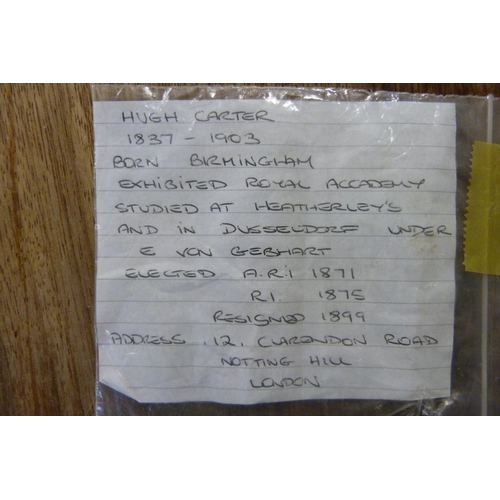 HUGH CARTER
1837 - 1903
BORN BIRMINGHAM
EXHIBITED ROYAL ACCADEMY
STUDIED AT HEATHERLEY'S
AND IN DUSSELDORF UNDER
E VON GEBHART
ELECTED A.R.I 1871
R.I. 1875
RESIGNED 1899
ADDRESS .12. CLARENDON ROAD
NOTTING HILL
LONDON